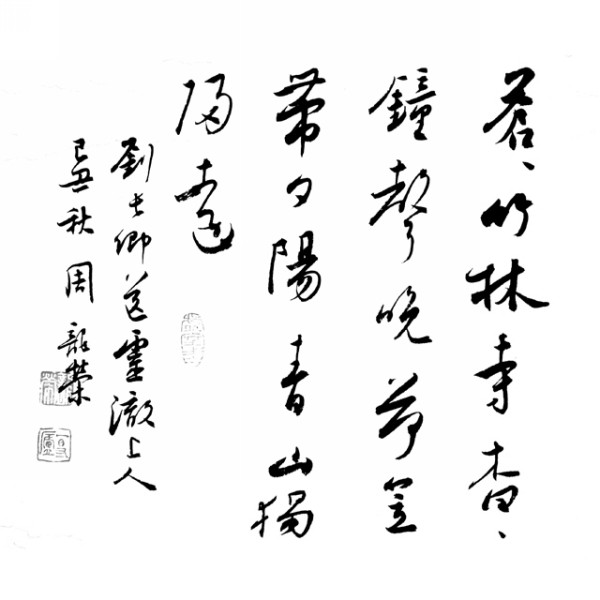 蒼、竹林寺杳、
鐘聲晚荷笠
帶夕陽青山獨
歸遠
劉長卿送靈澈上人
己丑秋周榮